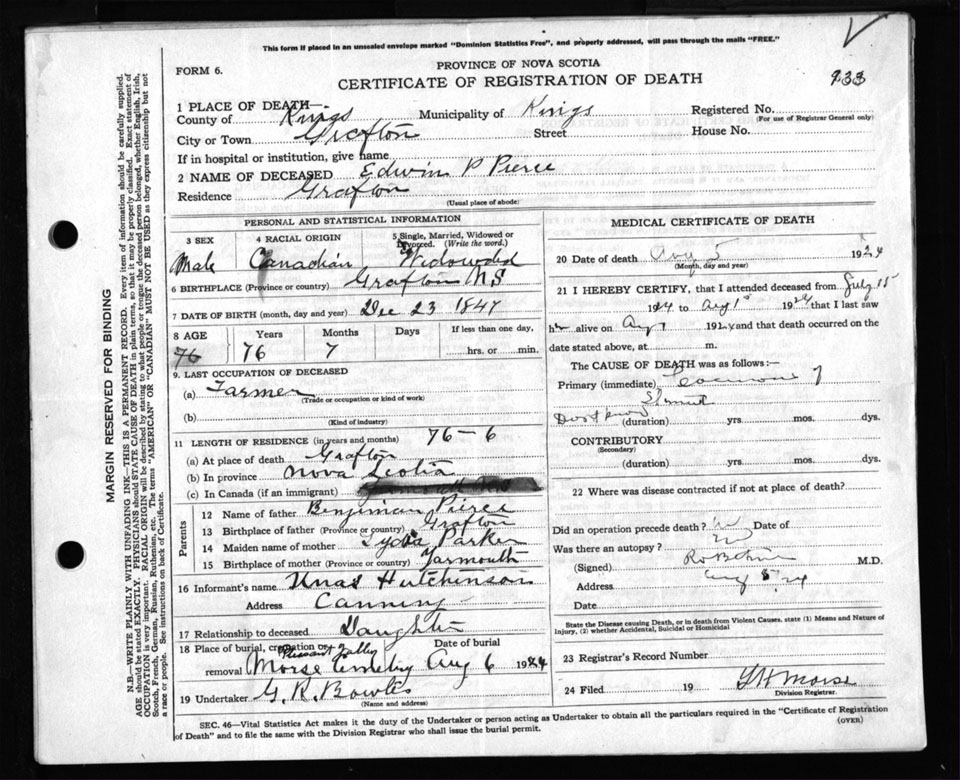 This form if placed in an unsealed envelope marked "Dominion Statistics Free", and properly addressed, will pass through the mails "FREE."
PROVINCE OF NOVA SCOTIA
FORM 6.
CERTIFICATE OF REGISTRATION OF DEATH
933
1 PLACE OF DEATH—
County of Kings Municipality of Kings Registered No.
(For use of Registrar General only)
City or Town Grafton Street House No.
If in hospital or institution, give name
2 NAME OF DECEASED Edwin P Pierce
Residence Grafton
(Usual place of abode)
PERSONAL AND STATISTICAL INFORMATION
3 SEX 4 RACIAL ORIGIN 5 Single, Married, Widowed or Divorced. (Write the word.)
Male Canadian Widowded
6 BIRTHPLACE (Province or country) Grafton NS
7 DATE OF BIRTH (month, day and year) Dec 23 1847
8 AGE Years Months Days If less than one day,
76 76 7 hrs. or min.
9. LAST OCCUPATION OF DECEASED
(a) Farmer
(Trade or occupation or kind of work)
(b)
(Kind of industry)
11 LENGTH OF RESIDENCE (in years and months) 76-6
(a) At place of death Grafton
(b) In province Nova Scotia
(c) In Canada (if an immigrant)
Parents
12 Name of father Benjiman Pierce
13 Birthplace of father (Province or country) Grafton
14 Maiden name of mother Lydia Parker
15 Birthplace of mother (Province or country) Yarmouth
16 Informant's name Hutchinson
Address Canning
17 Relationship to deceased Daughter
18 Place of burial, cremation or removal Pleasant Valley Date of burial
Morse Cemetry Aug 6 1924
19 Undertaker G. R. Bowles
(Name and address)
MEDICAL CERTIFICATE OF DEATH
20 Date of death Aug 5 1924
(Month, day and year)
21 I HEREBY CERTIFY, that I attended deceased from July 15
1924 to Aug 1 1924 that I last saw
h alive on Aug 1 1924 and that death occurred on the
date stated above, at m.
The CAUSE OF DEATH was as follows:—
Primary (immediate) of
(duration) yrs. mos. dys.
CONTRIBUTORY
(Secondary)
(duration) yrs. mos. dys.
22 Where was disease contracted if not at place of death?
Did an operation precede death? Date of
Was there an autopsy?
(Signed) M.D.
Address Aug 5 24
Date
State the Disease causing Death, or in death from Violent Causes, state (1) Means and Nature of
Injury, (2) whether Accidental, Suicidal or Homicidal
23 Registrar's Record Number
24 Filed 19 Morse
Division Registrar.
SEC. 46—Vital Statistics Act makes it the duty of the Undertaker or person acting as Undertaker to obtain all the particulars required in the "Certificate of Registration
of Death" and to file the same with the Division Registrar who shall issue the burial permit.
(OVER)
MARGIN RESERVED FOR BINDING
N.B.—WRITE PLAINLY WITH UNFADING INK—THIS IS A PERMANENT RECORD. Every item of information should be carefully supplied.
AGE should be stated EXACTLY. PHYSICIANS should STATE CAUSE OF DEATH in plain terms, so that it may be properly classified. Exact statement of
OCCUPATION is very important. RACIAL ORIGIN will be described by stating to what people or tongue the deceased person belonged, whether English, Irish,
Scotch, French, German, Russian, Ruthenian, etc. The terms "AMERICAN" OR "CANADIAN" MUST NOT BE USED as they express citizenship but not
a race or people. See instructions on back of Certificate.